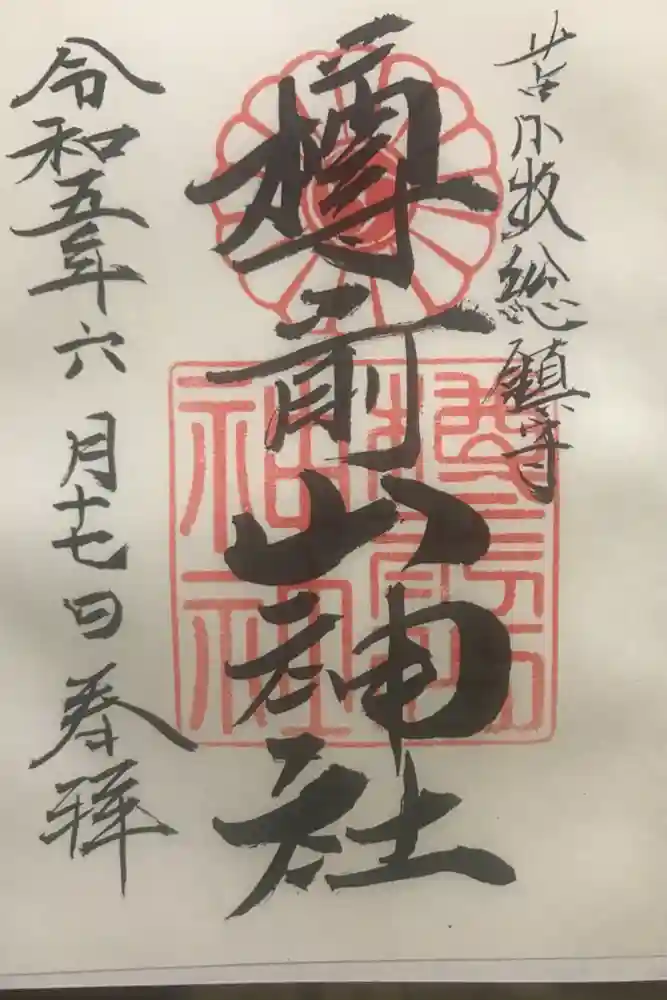 苫小牧総鎮守
樽前山神社
令和五年六月十七日奉拝
樽前山神社